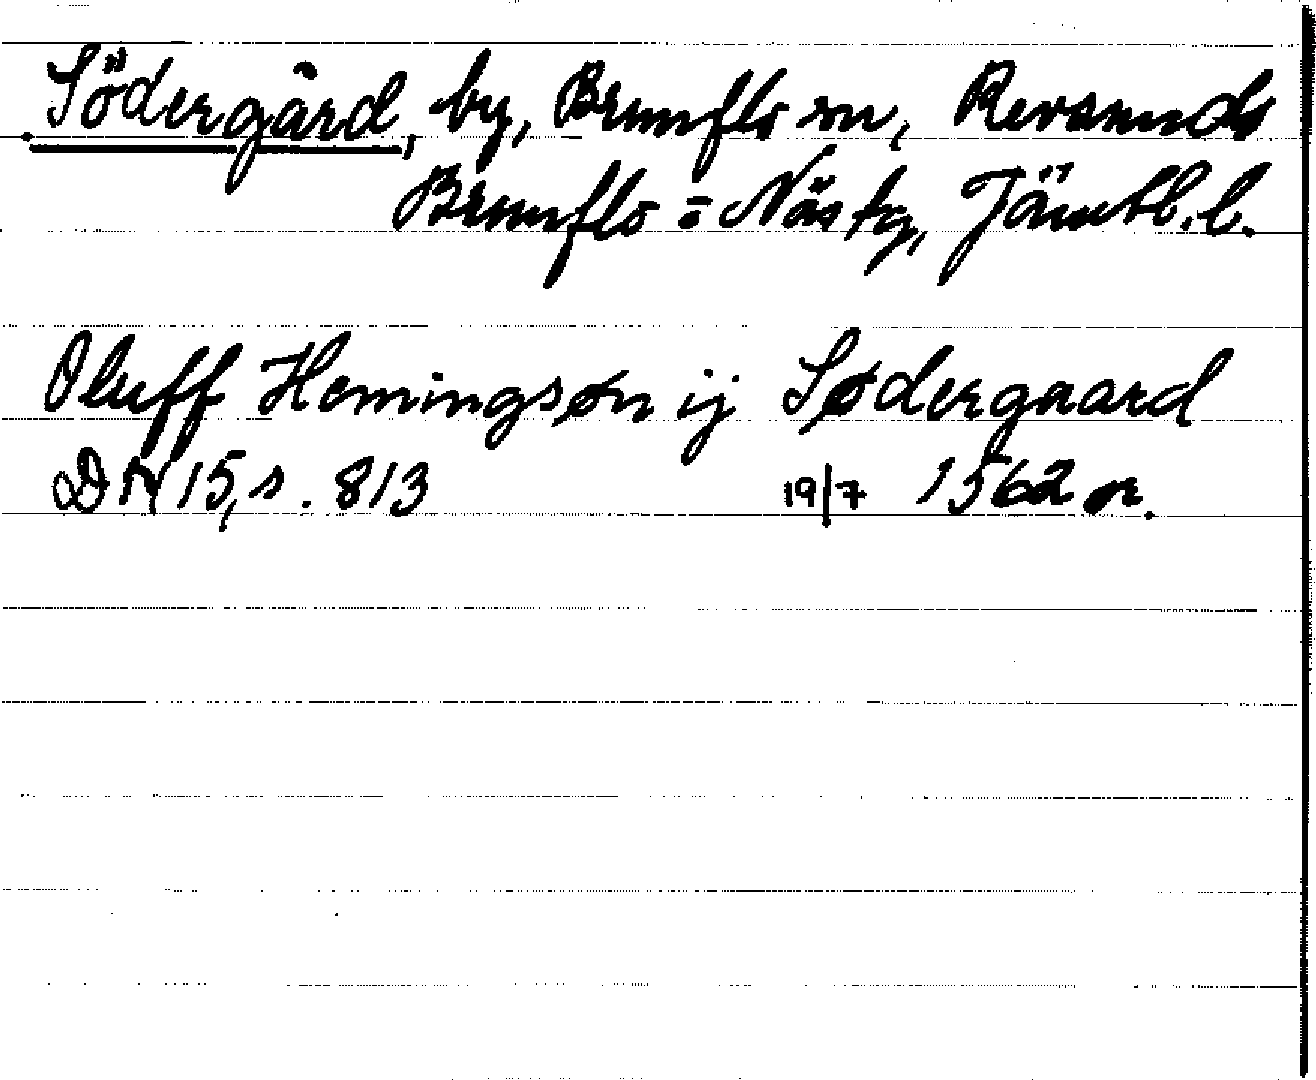 Södergård, by, Brunflo sn, Revsunds
Brunflo = Näs tg, Jämtl. l.
Oluff Hemingsøn ij Södergaard
DN 15, s. 813 19/7 1562 or.